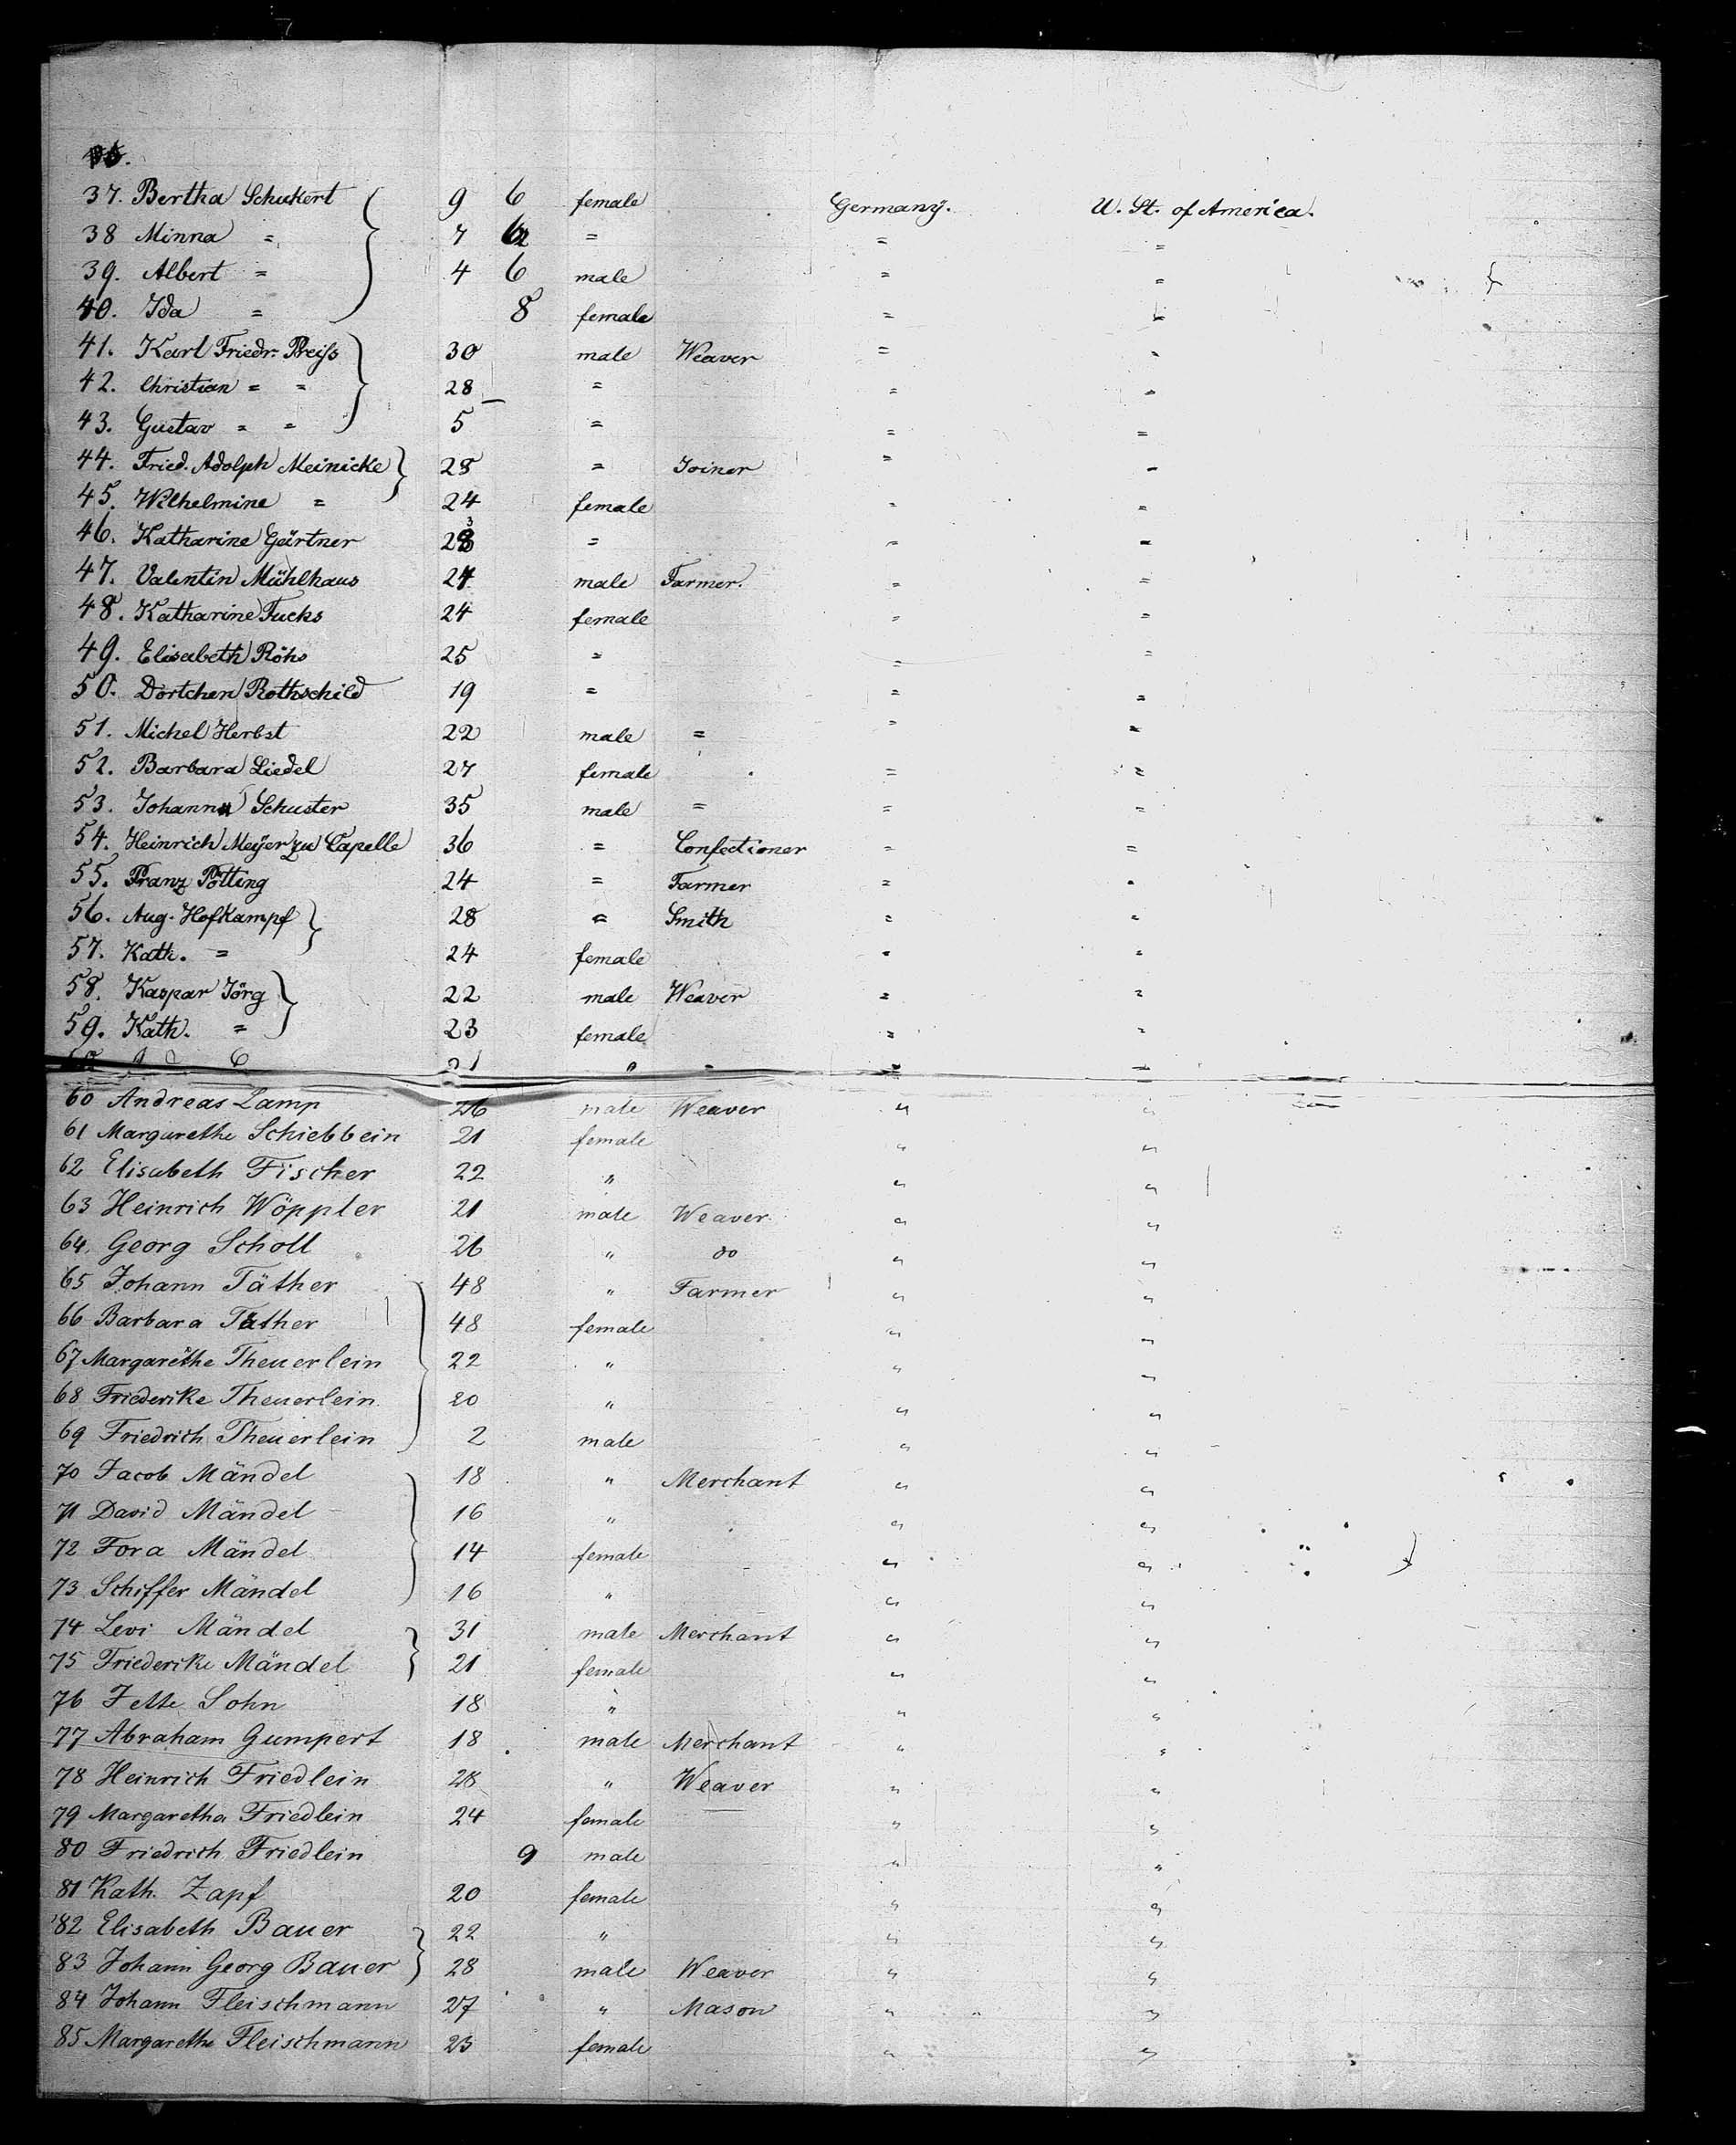 37. Bertha Schukert 9 6 female Germany. U. St. of America.
38 Minna = 7 = = =
39. Albert = 4 6 male = =
40. Ida = 8 female = =
41. Karl Friedr. Preiss 30 male Weaver = =
42. Christian = = 28 = = =
43. Gustav = = 5 = = =
44. Fried. Adolph Meinicke 28 = Joiner = =
45. Wilhelmine = 24 female = =
46. Katharine Gärtner 23 = = =
47. Valentin Mühlhaus 24 male Farmer. = =
48. Katharine Fucks 24 female = =
49. Elisabeth Röhs 25 = = =
50. Dortchen Rothschild 19 = = =
51. Michel Herbst 22 male = = =
52. Barbara Liedel 27 female = =
53. Johann Schuster 35 male = = =
54. Heinrich Meyer zu Capelle 36 = Confectioner = =
55. Franz Pötting 24 = Farmer = =
56. Aug. Hofkampf 28 = Smith = =
57. Kath. = 24 female = =
58. Kaspar Jörg 22 male Weaver = =
59. Kath. = 23 female = =
60 Andreas Lamp 26 male Weaver " "
61 Margarethe Schiebbein 21 female " "
62 Elisabeth Fischer 22 " " "
63 Heinrich Wöppler 21 male Weaver " "
64. Georg Scholl 26 " do " "
65 Johann Täther 48 " Farmer " "
66 Barbara Täther 48 female " "
67 Margarethe Theuerlein 22 " " "
68 Friederike Theuerlein 20 " " "
69 Friedrich Theuerlein 2 male " "
70 Jacob Mändel 18 " Merchant " "
71 David Mändel 16 " " "
72 Fora Mändel 14 female " "
73 Schiffer Mändel 16 " " "
74 Levi Mändel 31 male Merchant " "
75 Friederike Mändel 21 female " "
76 Jette Sohn 18 " " "
77 Abraham Gumpert 18 male Merchant " "
78 Heinrich Friedlein 28 " Weaver " "
79 Margaretha Friedlein 24 female " "
80 Friedrich Friedlein 9 male " "
81 Kath. Zapf 20 female " "
82 Elisabeth Bauer 22 " " "
83 Johann Georg Bauer 28 male Weaver " "
84 Johann Fleischmann 27 " Mason " "
85 Margarethe Fleischmann 23 female " "